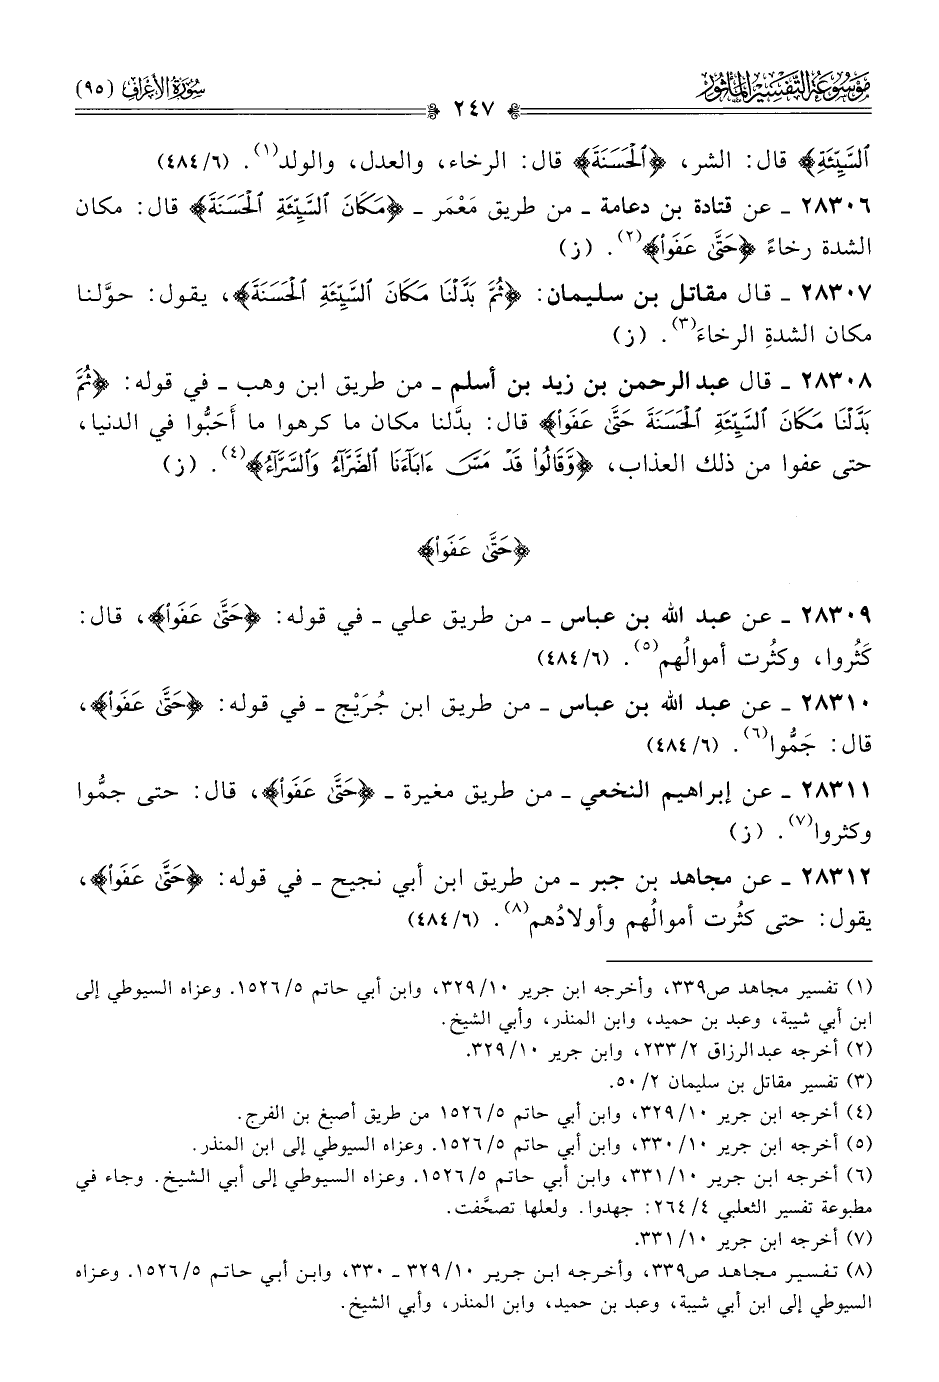 مَوْسُوعَة التَّفْسِير المَأْثُور
سُورَةُ الأَعْرَاف (٩٥)
٢٤٧
ٱلسَّيِّئَةِ﴾ قال: الشر، ﴿ٱلْحَسَنَةَ﴾ قال: الرخاء، والعدل، والولد(١). (٦/٤٨٤)
٢٨٣٠٦ ـ عن قتادة بن دعامة ـ من طريق مَعْمَر ـ ﴿مَكَانَ ٱلسَّيِّئَةِ ٱلْحَسَنَةَ﴾ قال: مكان
الشدة رخاءً ﴿حَتَّىٰ عَفَوا۟﴾(٢). (ز)
٢٨٣٠٧ ـ قال مقاتل بن سليمان: ﴿ثُمَّ بَدَّلْنَا مَكَانَ ٱلسَّيِّئَةِ ٱلْحَسَنَةَ﴾، يقول: حوَّلنا
مكان الشدةِ الرخاءَ(٣). (ز)
٢٨٣٠٨ ـ قال عبد الرحمن بن زيد بن أسلم ـ من طريق ابن وهب ـ في قوله: ﴿ثُمَّ
بَدَّلْنَا مَكَانَ ٱلسَّيِّئَةِ ٱلْحَسَنَةَ حَتَّىٰ عَفَوا۟﴾ قال: بدَّلنا مكان ما كرهوا ما أَحَبُّوا في الدنيا،
حتى عفوا من ذلك العذاب، ﴿وَّقَالُوا۟ قَدْ مَسَّ ءَابَآءَنَا ٱلضَّرَّآءُ وَٱلسَّرَّآءُ﴾(٤). (ز)
﴿حَتَّىٰ عَفَوا۟﴾
٢٨٣٠٩ ـ عن عبد الله بن عباس ـ من طريق علي ـ في قوله: ﴿حَتَّىٰ عَفَوا۟﴾، قال:
كَثُروا، وكثُرت أموالُهم(٥). (٦/٤٨٤)
٢٨٣١٠ ـ عن عبد الله بن عباس ـ من طريق ابن جُرَيْج ـ في قوله: ﴿حَتَّىٰ عَفَوا۟﴾،
قال: جَمُّوا(٦). (٦/٤٨٤)
٢٨٣١١ ـ عن إبراهيم النخعي ـ من طريق مغيرة ـ ﴿حَتَّىٰ عَفَوا۟﴾، قال: حتى جمُّوا
وكثروا(٧). (ز)
٢٨٣١٢ ـ عن مجاهد بن جبر ـ من طريق ابن أبي نجيح ـ في قوله: ﴿حَتَّىٰ عَفَوا۟﴾،
يقول: حتى كثُرت أموالُهم وأولادُهم(٨). (٦/٤٨٤)
(١) تفسير مجاهد ص٣٣٩، وأخرجه ابن جرير ١٠/٣٢٩، وابن أبي حاتم ٥/١٥٢٦. وعزاه السيوطي إلى
ابن أبي شيبة، وعبد بن حميد، وابن المنذر، وأبي الشيخ.
(٢) أخرجه عبدالرزاق ٢/٢٣٣، وابن جرير ١٠/٣٢٩.
(٣) تفسير مقاتل بن سليمان ٢/٥٠.
(٤) أخرجه ابن جرير ١٠/٣٢٩، وابن أبي حاتم ٥/١٥٢٦ من طريق أصبغ بن الفرج.
(٥) أخرجه ابن جرير ١٠/٣٣٠، وابن أبي حاتم ٥/١٥٢٦. وعزاه السيوطي إلى ابن المنذر.
(٦) أخرجه ابن جرير ١٠/٣٣١، وابن أبي حاتم ٥/١٥٢٦. وعزاه السيوطي إلى أبي الشيخ. وجاء في
مطبوعة تفسير الثعلبي ٤/٢٦٤: جهدوا. ولعلها تصحَّفت.
(٧) أخرجه ابن جرير ١٠/٣٣١.
(٨) تفسير مجاهد ص٣٣٩، وأخرجه ابن جرير ١٠/٣٢٩ ـ ٣٣٠، وابن أبي حاتم ٥/١٥٢٦. وعزاه
السيوطي إلى ابن أبي شيبة، وعبد بن حميد، وابن المنذر، وأبي الشيخ.